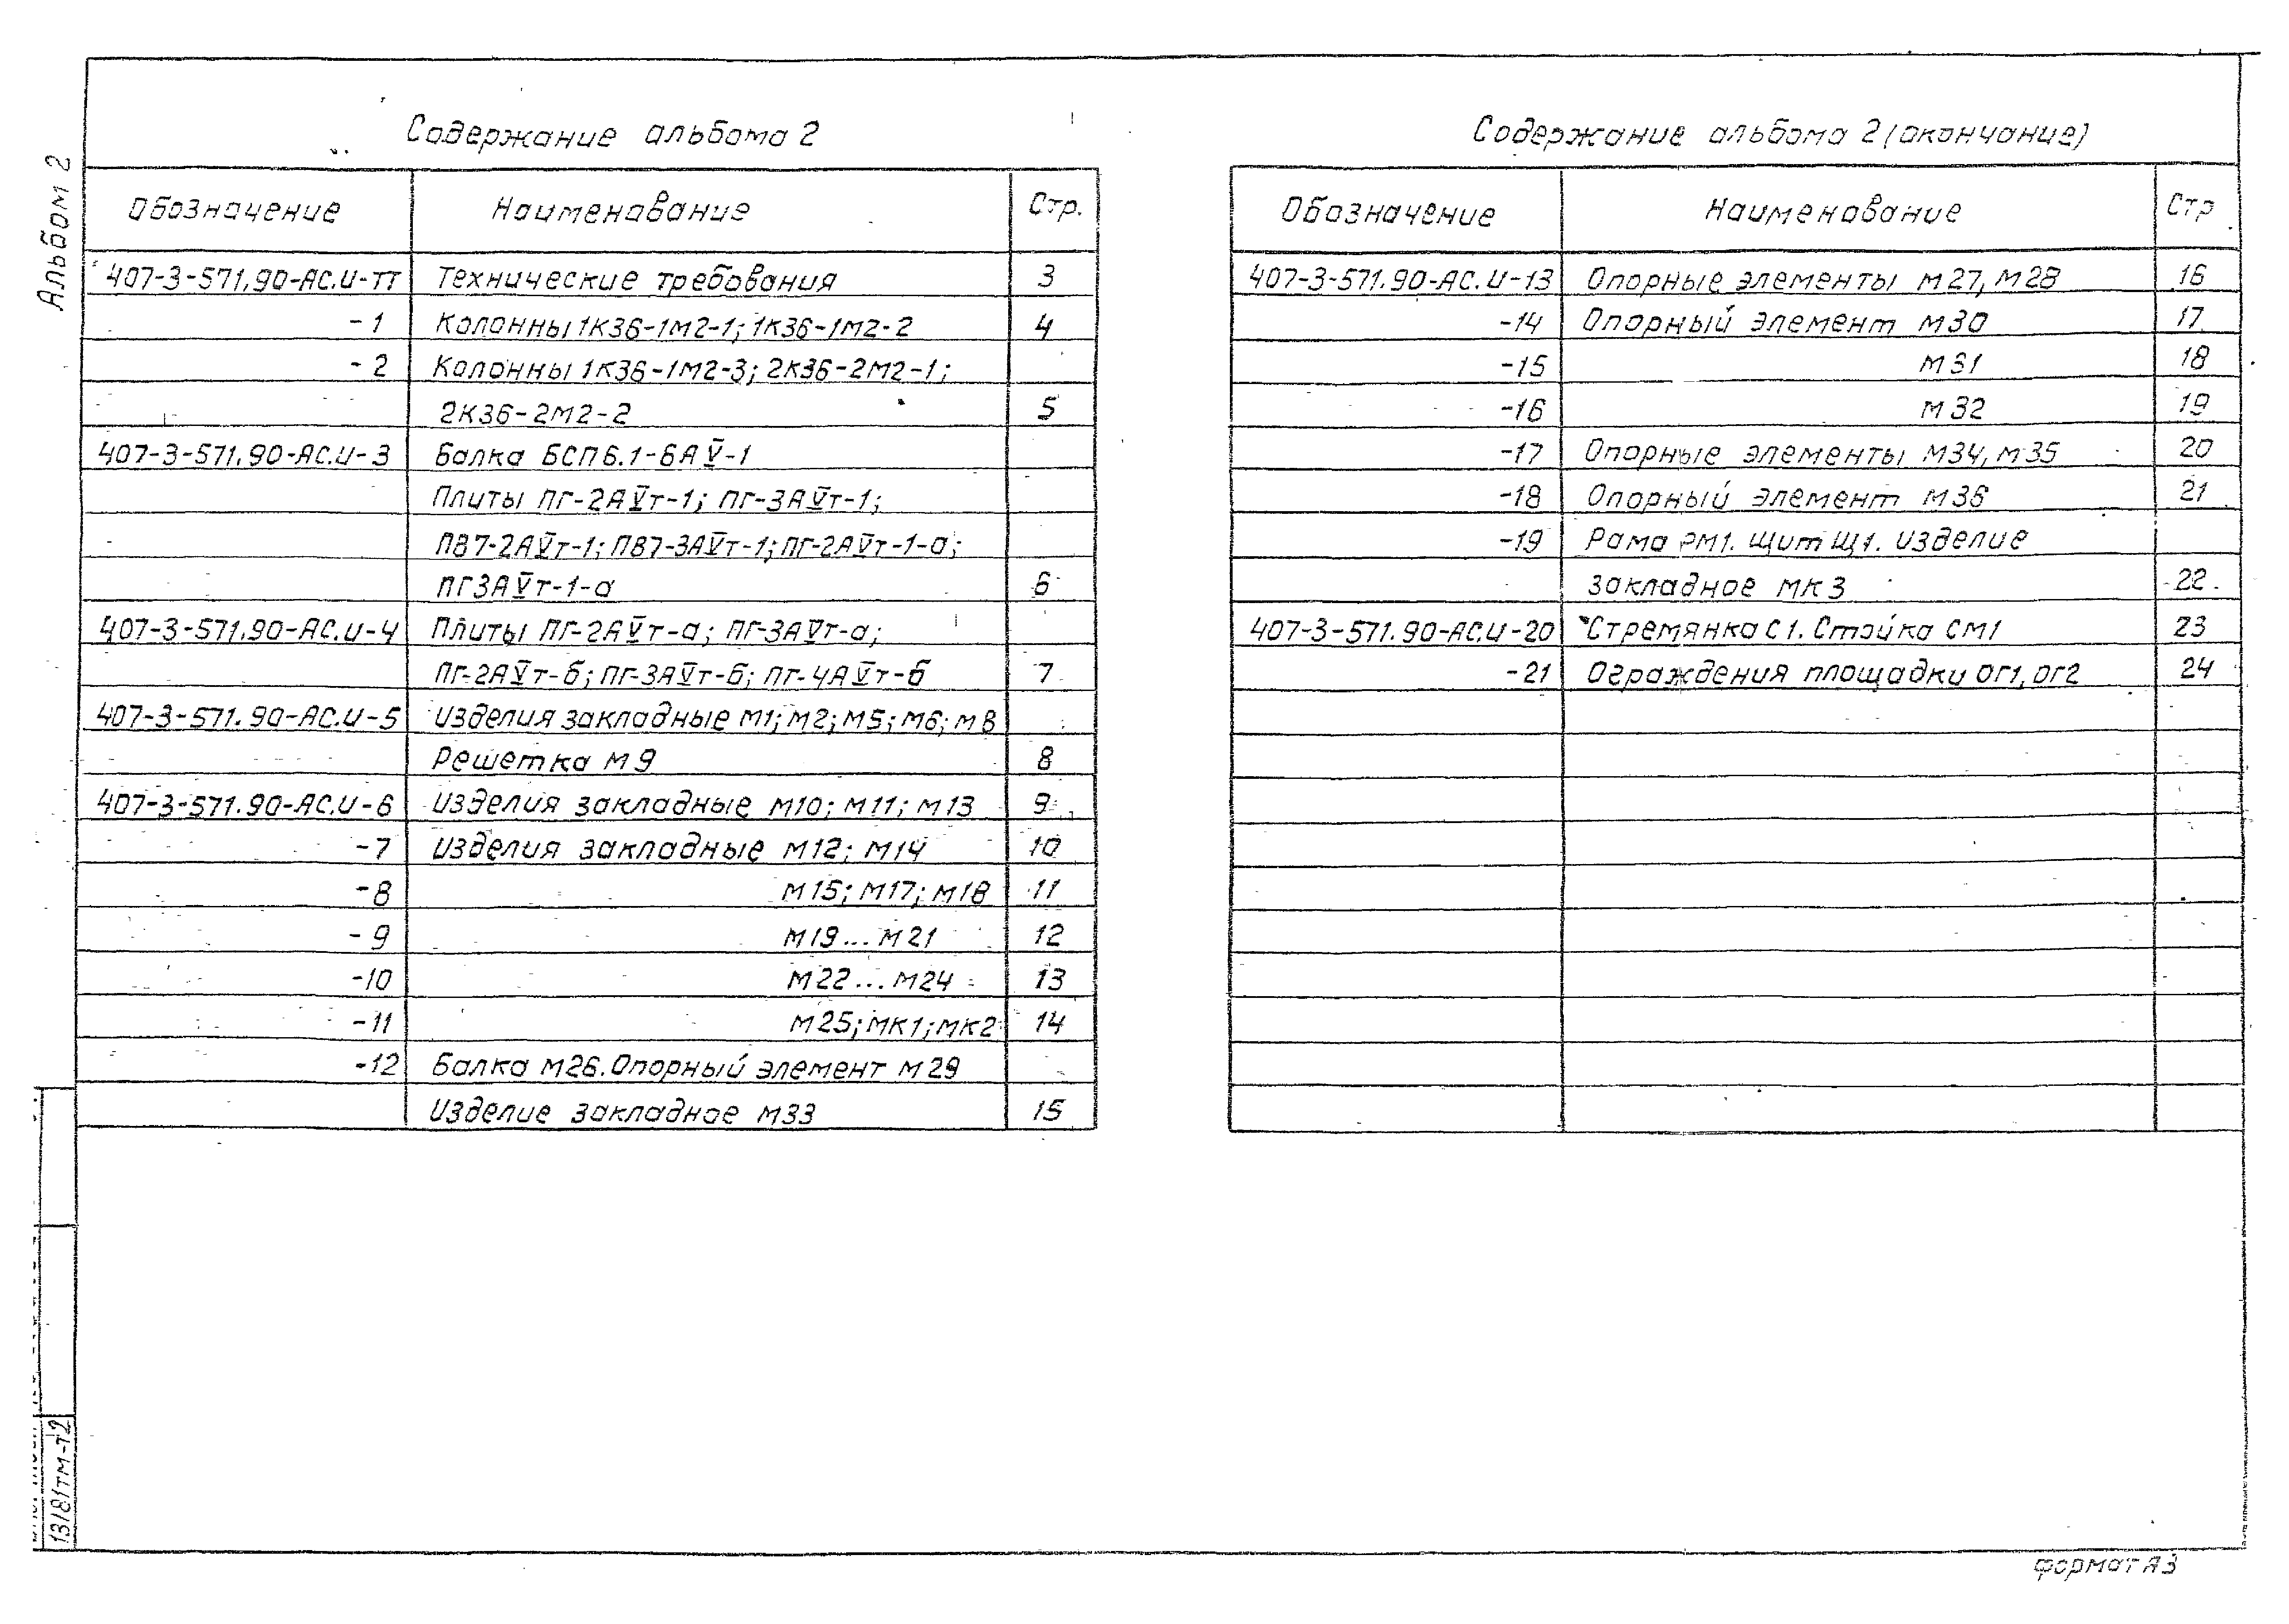 Альбом 2
Содержание альбома 2
Обозначение Наименование Стр.
407-3-571.90-АС.И-ТТ Технические требования 3
-1 Колонны 1К36-1М2-1; 1К36-1М2-2 4
-2 Колонны 1К36-1М2-3; 2К36-2М2-1;
2К36-2М2-2 5
407-3-571.90-АС.И-3 Балка БСП6.1-6АV-1
Плиты ПГ-2АVт-1; ПГ-3АVт-1;
ПВ7-2АVт-1; ПВ7-3АVт-1; ПГ-2АVт-1-а;
ПГ3АVт-1-а 6
407-3-571.90-АС.И-4 Плиты ПГ-2АVт-а; ПГ-3АVт-а;
ПГ-2АVт-б; ПГ-3АVт-б; ПГ-4АVт-б 7
407-3-571.90-АС.И-5 Изделия закладные М1; М2; М5; М6; М8
Решетка М9 8
407-3-571.90-АС.И-6 Изделия закладные М10; М11; М13 9
-7 Изделия закладные М12; М14 10
-8 М15; М17; М18 11
-9 М19...М21 12
-10 М22...М24 13
-11 М25; МК1; МК2 14
-12 Балка М26. Опорный элемент М29
Изделие закладное М33 15
Содержание альбома 2 (окончание)
Обозначение Наименование Стр
407-3-571.90-АС.И-13 Опорные элементы М27, М28 16
-14 Опорный элемент М30 17
-15 М31 18
-16 М32 19
-17 Опорные элементы М34, М35 20
-18 Опорный элемент М36 21
-19 Рама РМ1. Щит Щ1. Изделие
закладное МК3 22
407-3-571.90-АС.И-20 Стремянка С1. Стойка СМ1 23
-21 Ограждения площадки ОГ1, ОГ2 24
13181тм-т2
формат А3